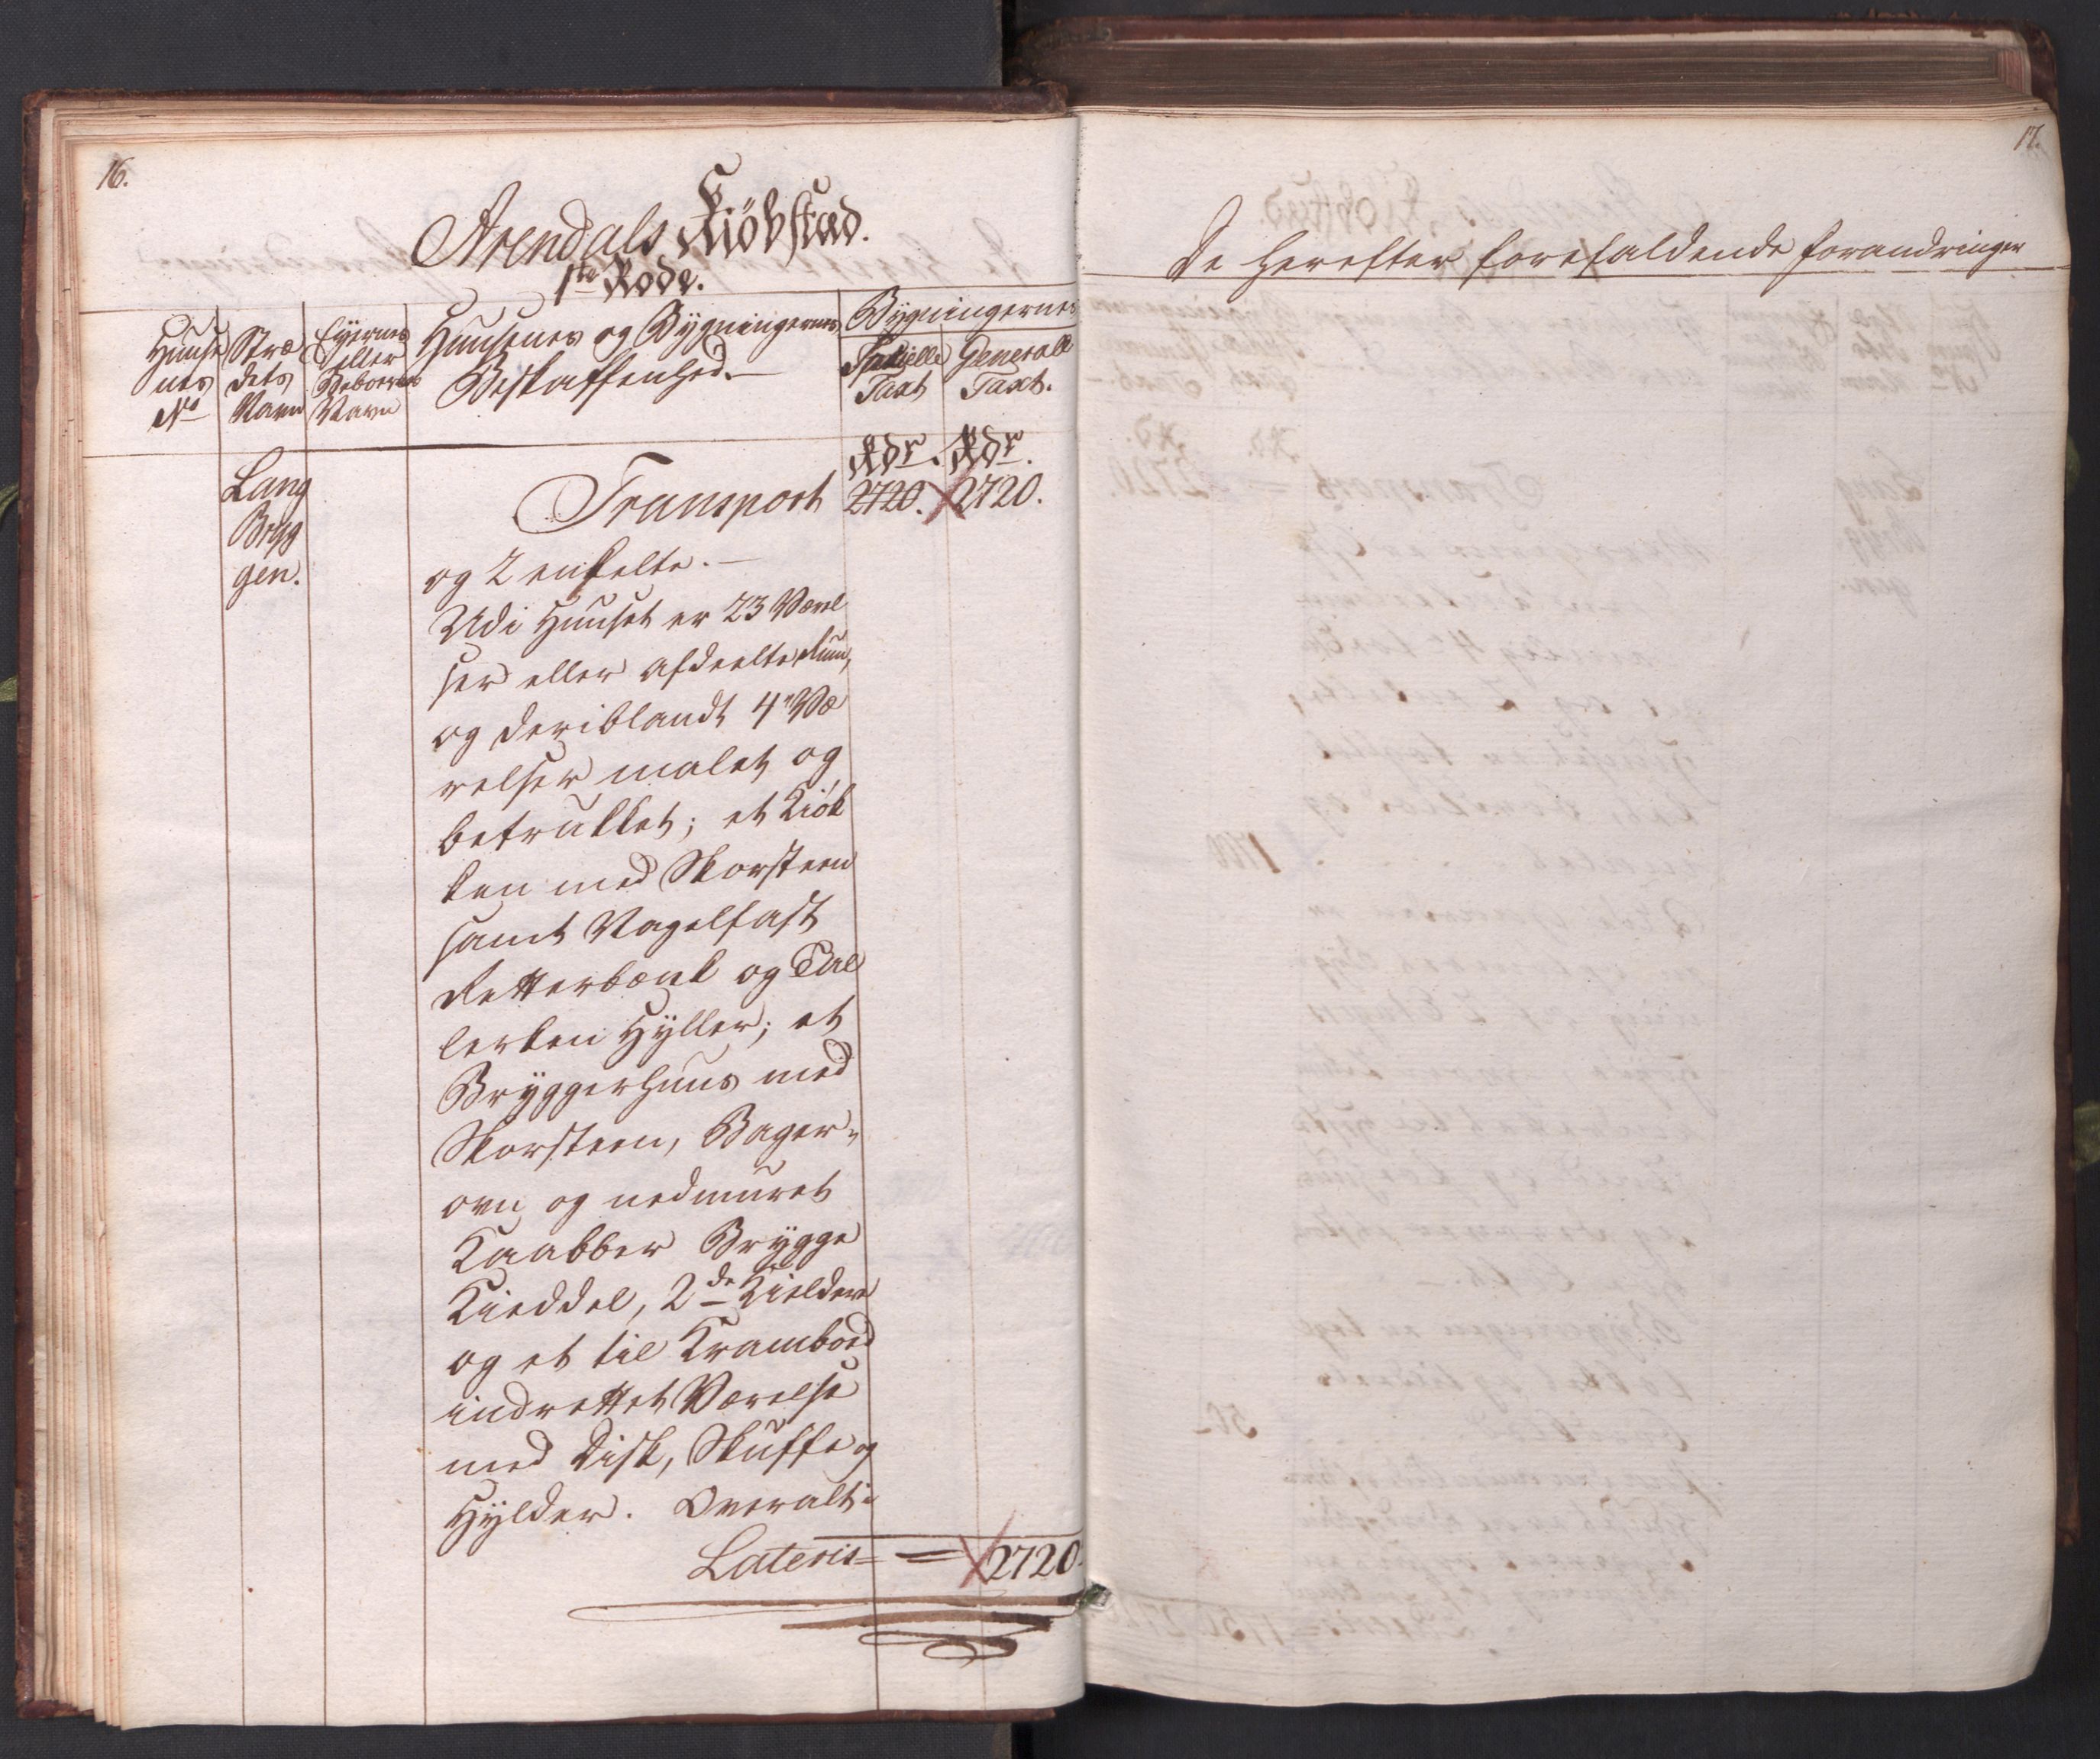 16.
Arendals Kiöbstæd.
1ste Rode.
Huuse
nes
No
Stræ
dets
Navn
Eÿernes
eller
Beboernes
Navn
Huusenes og Bÿgningernes
Beskaffenhed.
Bÿgningernes
Specielle
Taxt
Generale
Taxt.
Rdr. Rdr.
Lang
Brÿg
gen.
Transport 2720. 2720.
og 2 enkelte.
Udi Huuset er 23 Værel
ser eller afdeelte Rum,
og deriblandt 4r Væ
relser malet og
betrukket; et Kiök
ken med Skorsteen
samt Nagelfast
Retterbænk og Tal
lerken Hÿller; et
Brÿggerhuus med
Skorsteen, Bager-
ovn og nedmuret
Kaabber Brÿgge
Kieddel, 2de Kieldere
og et til Krambod
indrettet Værelse
med Disk, Skuffe og
Hÿlder. Overalt:
Lateris = = 2720.
17.
De herefter forefaldende forandringer